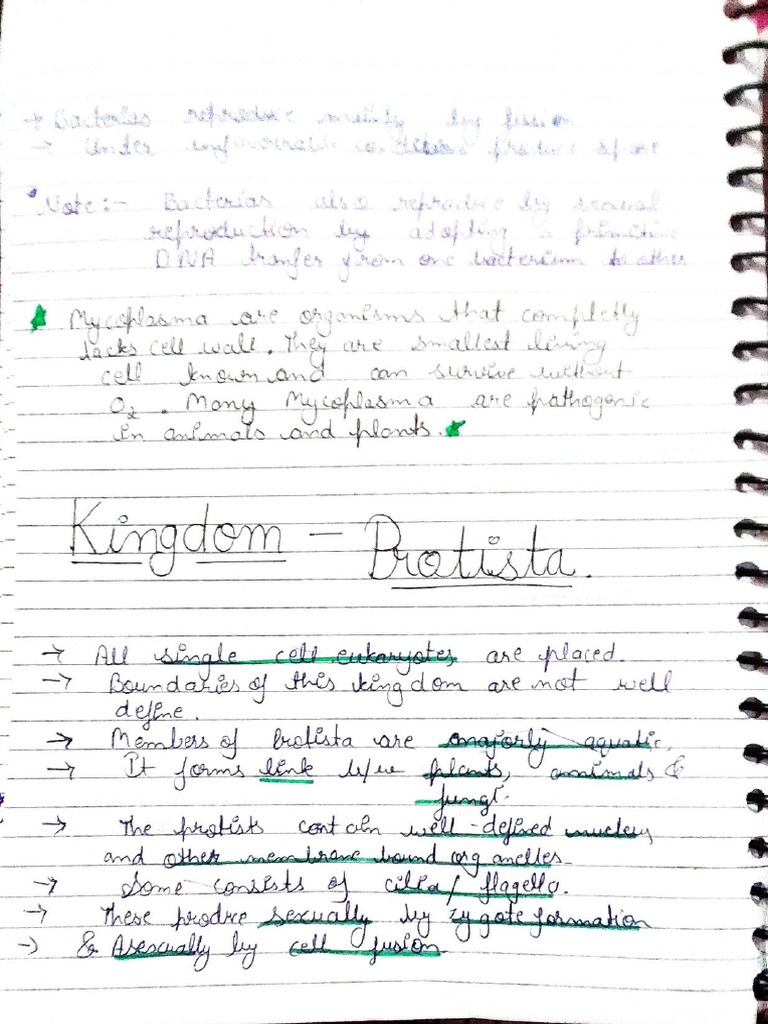 → Bacterias reproduce mainly by fission
→ Under unfavourable conditions produce spore
*Note:- Bacterias also reproduce by sexual
reproduction by adopting a primitive
DNA tranfer from one bacterium to other
Mycoplasma are organisms that completly
lacks cell wall. They are smallest living
cell known and can survive without
O₂. Many Mycoplasma are pathogenic
in animals and plants.
Kingdom - Protista.
→ All single cell eukaryotes are placed.
→ Boundaries of this kingdom are not well
define.
→ Members of Protista are majorly aquatic.
→ It forms link b/w plants, animals &
fungi.
→ The protists contain well-defined nucleus
and other membrane bound organelles.
→ Some consists of cilia/flagella.
→ These produce sexually by zygote formation
→ & Asexually by cell fusion